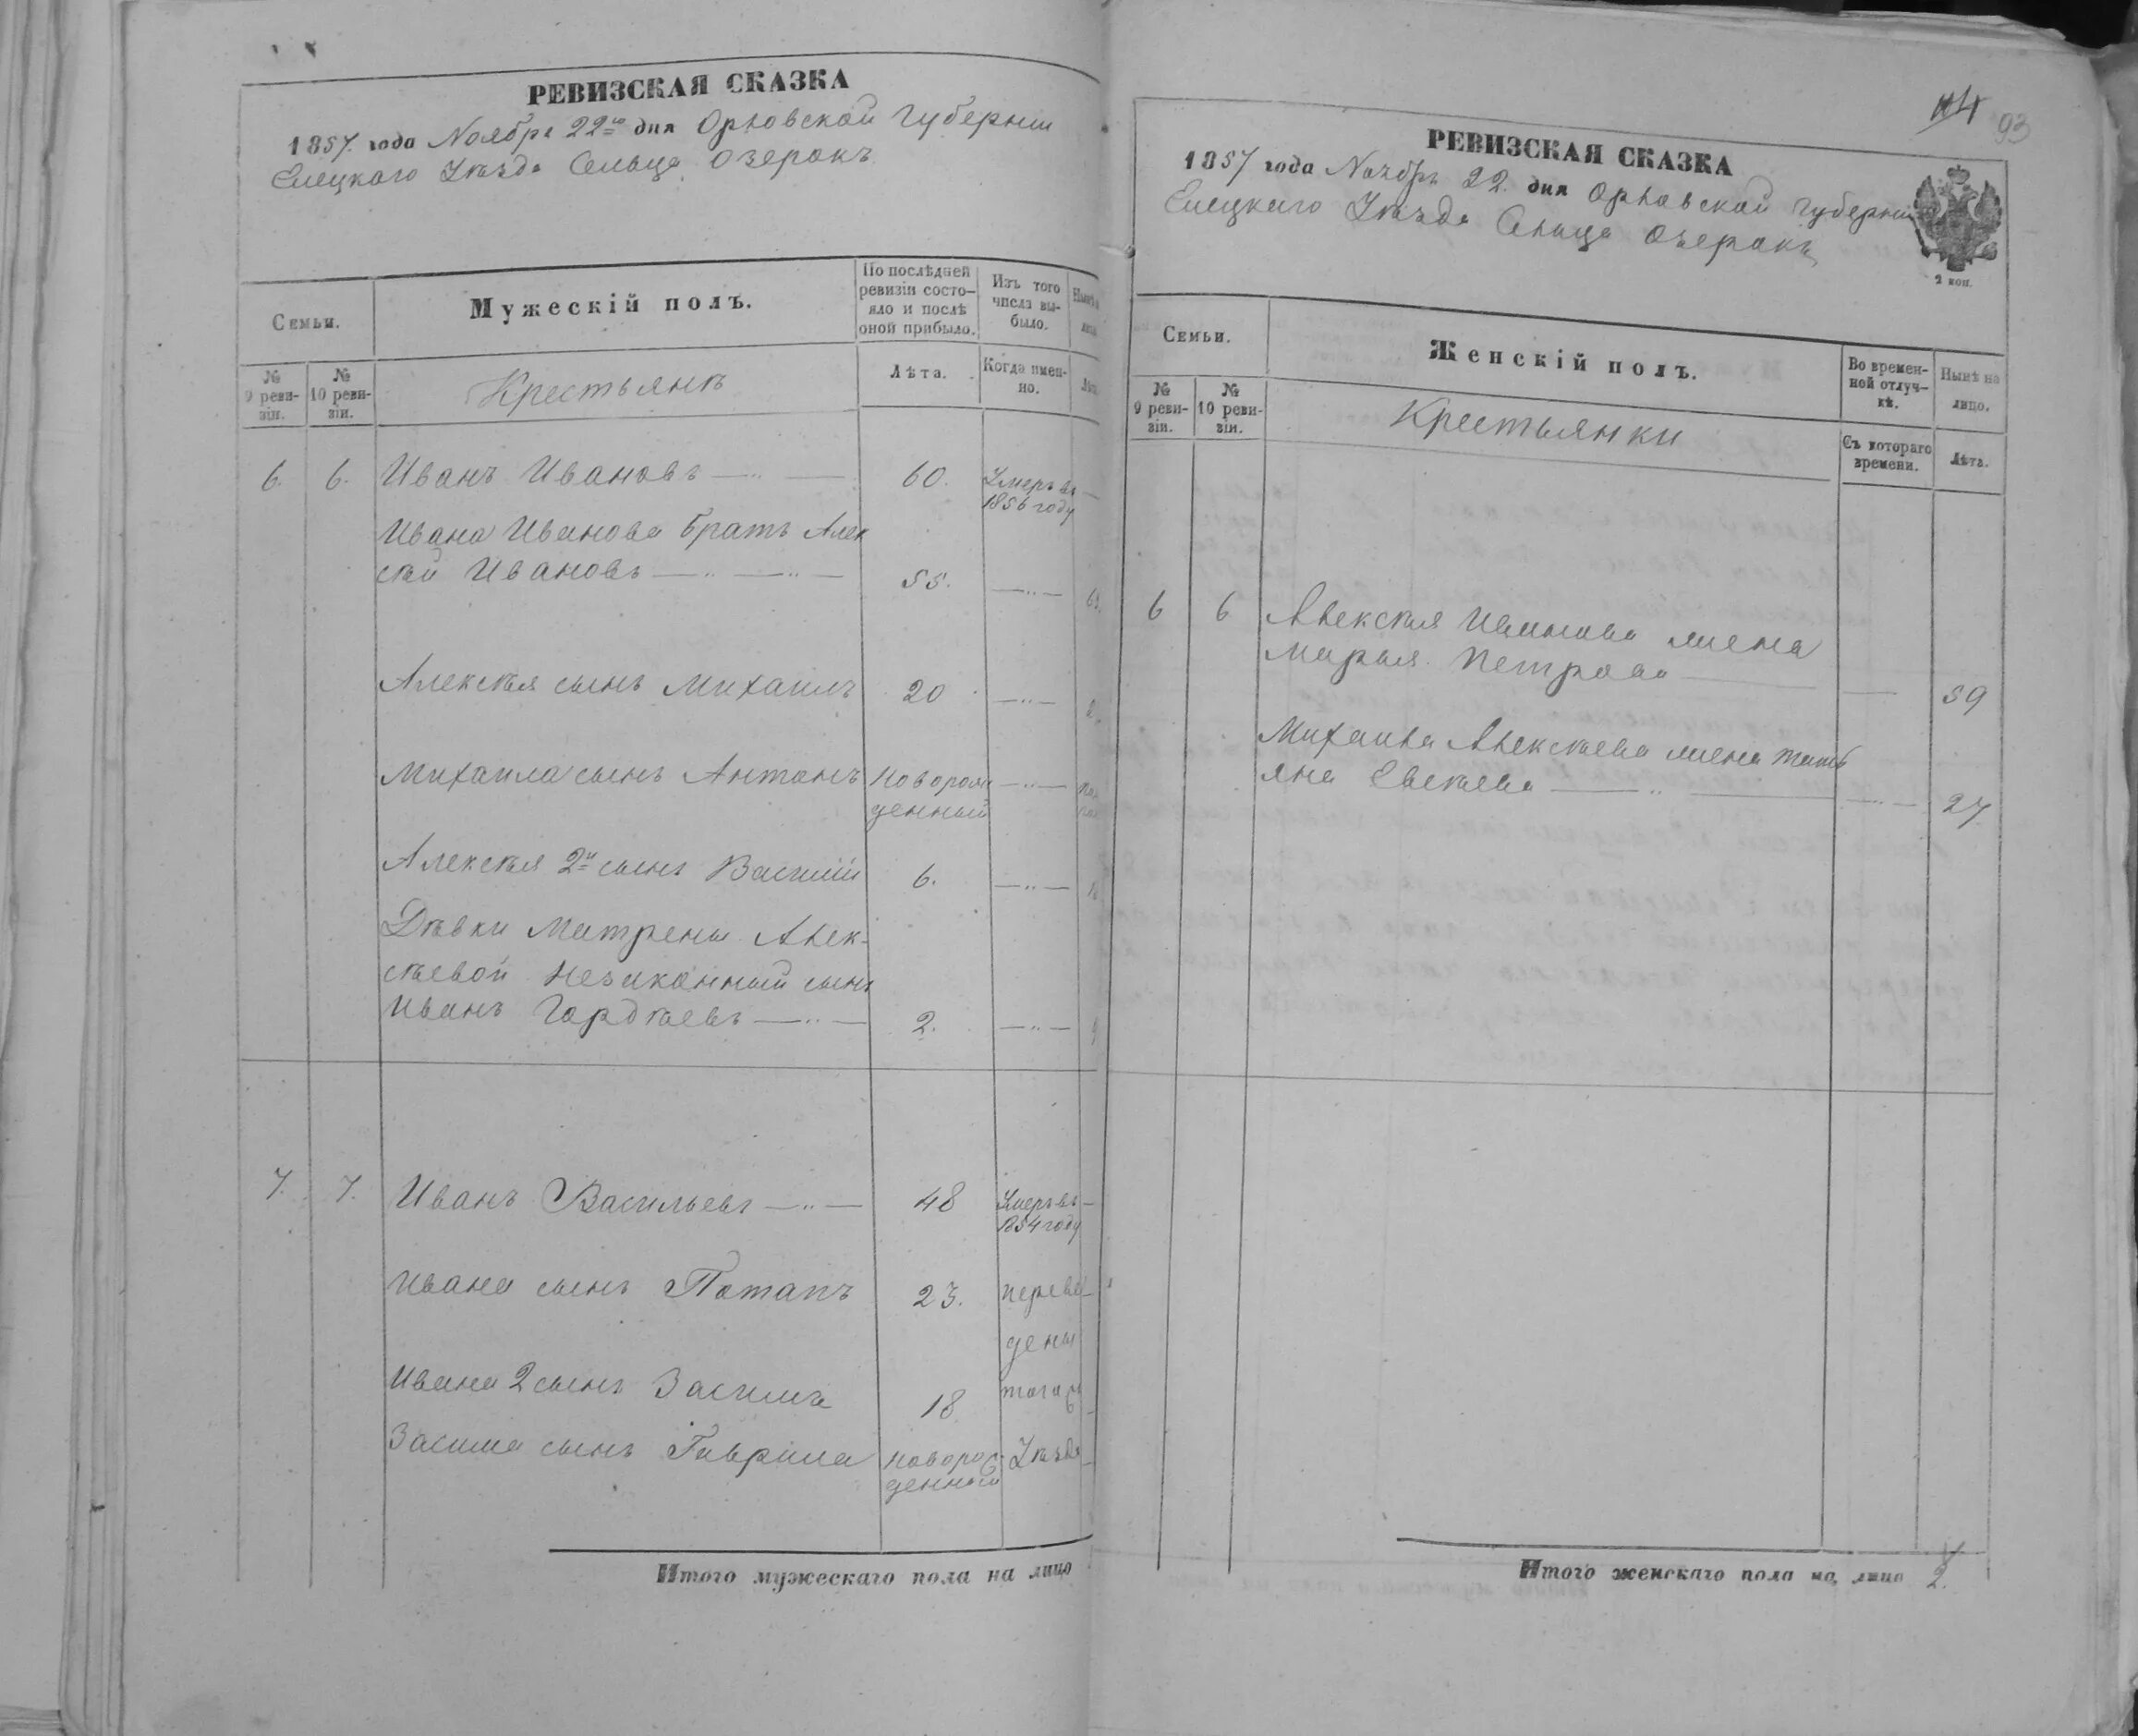 РЕВИЗСКАЯ СКАЗКА
1857 года Ноября 22го дня Орловской Губернии
Елецкаго Уѣзда Сельца Озерокъ
Семьи.
Мужескій полъ.
По послѣдней ревизіи состо-
яло и послѣ
оной прибыло.
Изъ того
числа вы-
было.
№
9 реви-
зіи.
№
10 реви-
зіи.
Крестьянъ
Лѣта.
Когда имен-
но.
6. 6. Иванъ Ивановъ 60. Умеръ въ
1856 году
Ивана Иванова братъ Алек
сѣй Ивановъ 55.
Алексѣя сынъ Михаилъ 20
Михаила сынъ Антонъ Новорож
денный
Алексѣя 2й сынъ Василій 6.
Дѣвки Матрены Алек-
сѣевой Незаконный сынъ
Иванъ Гордѣевъ 2.
7. 7. Иванъ Васильевъ 48 Умеръ въ
1854 году
Ивана сынъ Потапъ 23. переве
дены
Ивана 2 сынъ Засимъ 18 тогожъ
Засима сынъ Гаврила новорож
денный Уѣзда
Итого мужескаго пола на лицо
93
РЕВИЗСКАЯ СКАЗКА
1857 года Ноября 22. дня Орловской Губерніи
Елецкаго Уѣзда Сельца Озерокъ
2 коп.
Семьи.
Женскій полъ.
Во времен-
ной отлуч-
кѣ.
Нынѣ на
лицо.
№
9 реви-
зіи.
№
10 реви-
зіи.
Крестьянки
Съ котораго
времени.
Лѣта.
6 6 Алексѣя Иванова жена
Марья Петрова 59
Михаила Алексѣева жена Тать
яна Евсѣева 27
Итого женскаго пола на лицо 2.